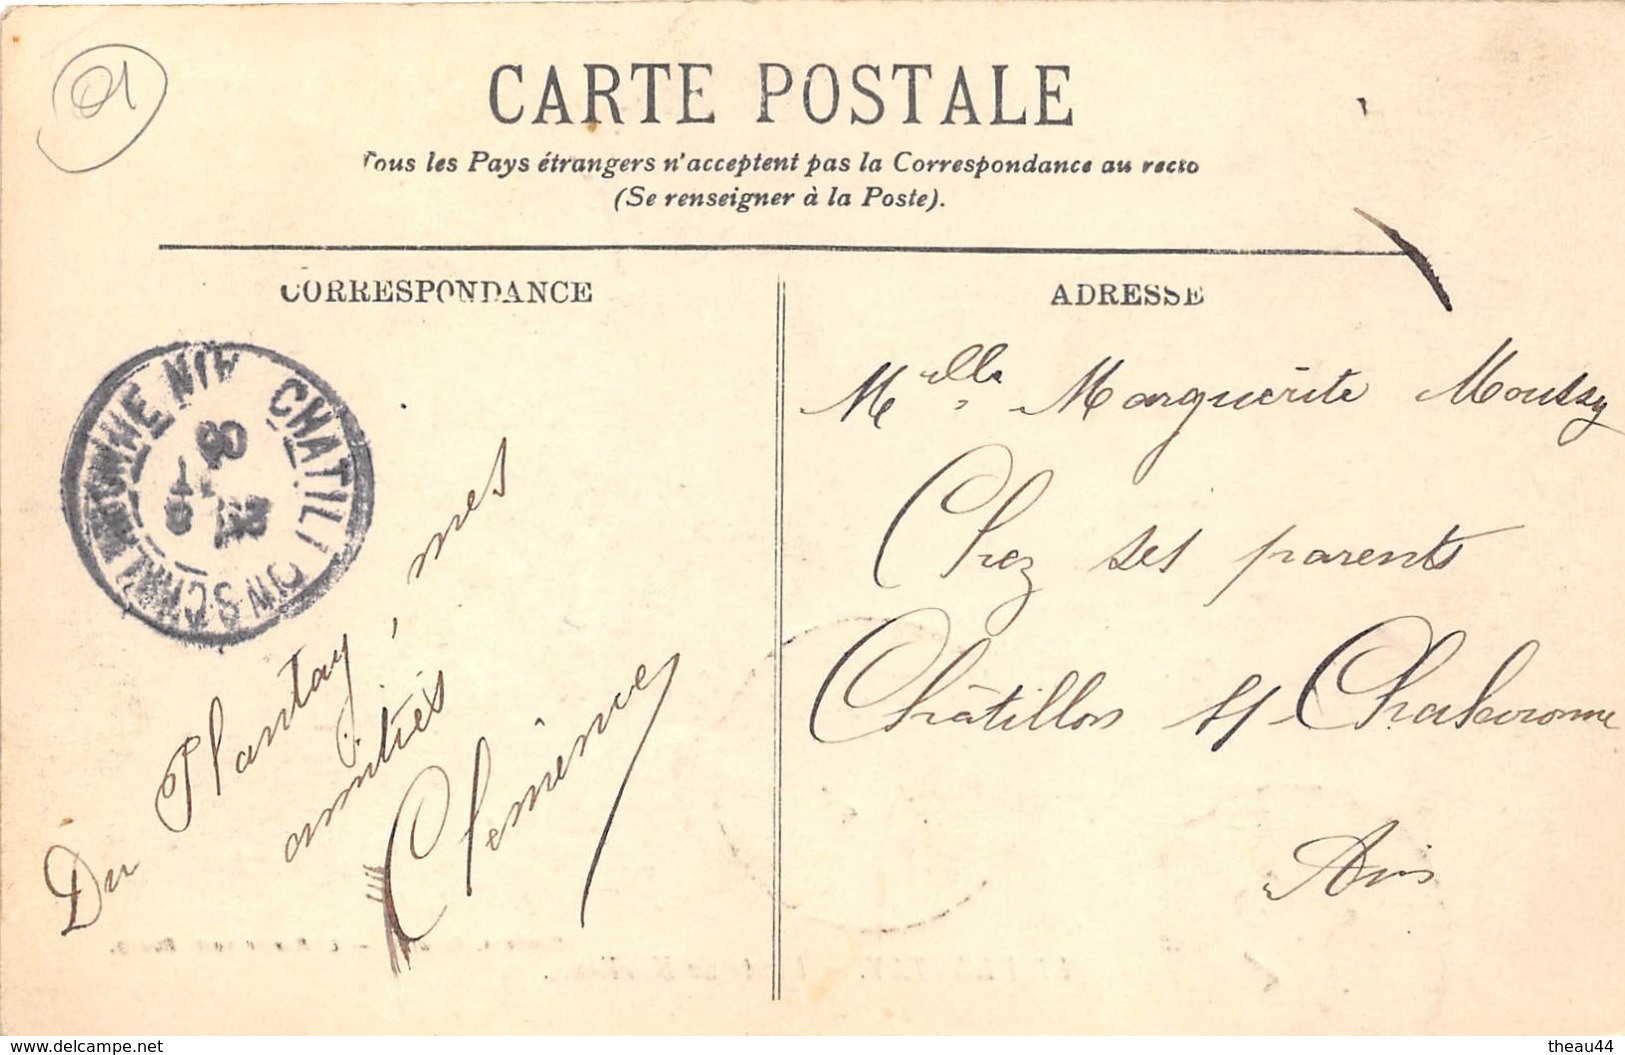 01
CARTE POSTALE
Tous les Pays étrangers n'acceptent pas la Correspondance au recto
(Se renseigner à la Poste).
CORRESPONDANCE
ADRESSE
CHATILLON S CHALARONNE AIN
08
Du Plantay, mes
amitiés
Clémence
Melle Marguerite
Chez ses parents
Châtillon s/ Chalaronne
Ain
www.delcampe.net
theau44